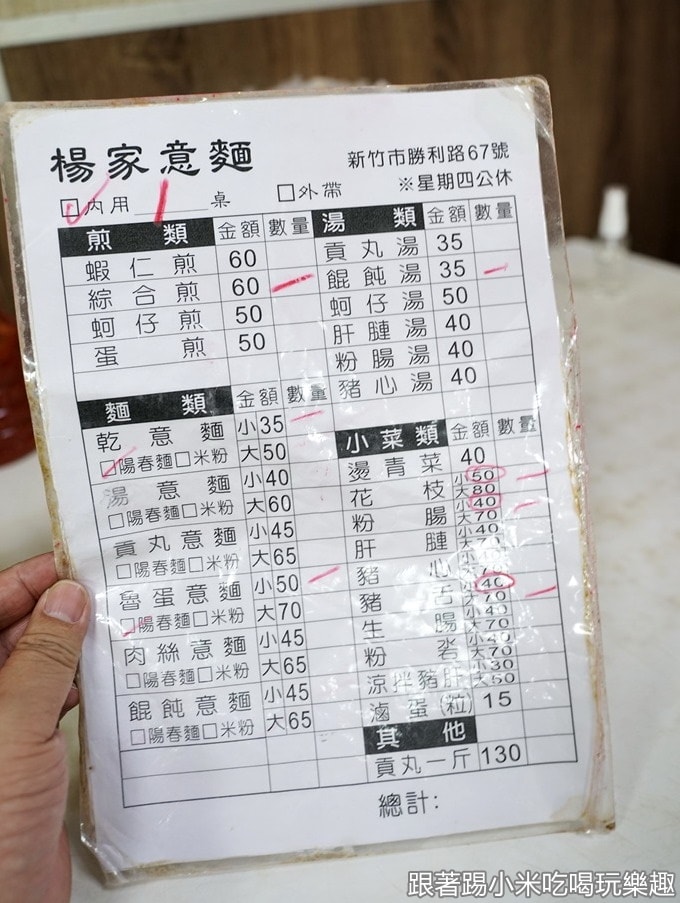 楊家意麵
新竹市勝利路67號
※星期四公休
□內用 1 桌 □外帶
煎類 金額 數量
蝦仁煎 60
綜合煎 60
蚵仔煎 50
蛋煎 50
湯類 金額 數量
貢丸湯 35
餛飩湯 35
蚵仔湯 50
肝腱湯 40
粉腸湯 40
豬心湯 40
麵類 金額 數量
乾意麵 小35
□陽春麵□米粉 大50
湯意麵 小40
□陽春麵□米粉 大60
貢丸意麵 小45
□陽春麵□米粉 大65
魯蛋意麵 小50
□陽春麵□米粉 大70
肉絲意麵 小45
□陽春麵□米粉 大65
餛飩意麵 小45
□陽春麵□米粉 大65
小菜類 金額 數量
燙青菜 40
花枝 小50 大80
粉腸 小40 大70
肝腱 小40
豬心
豬舌 40 大70
生腸 小40 大70
粉 小40 大70
涼拌豬肝 小30 大50
滷蛋(粒) 15
其他
貢丸一斤 130
總計:
跟著踢小米吃喝玩樂趣